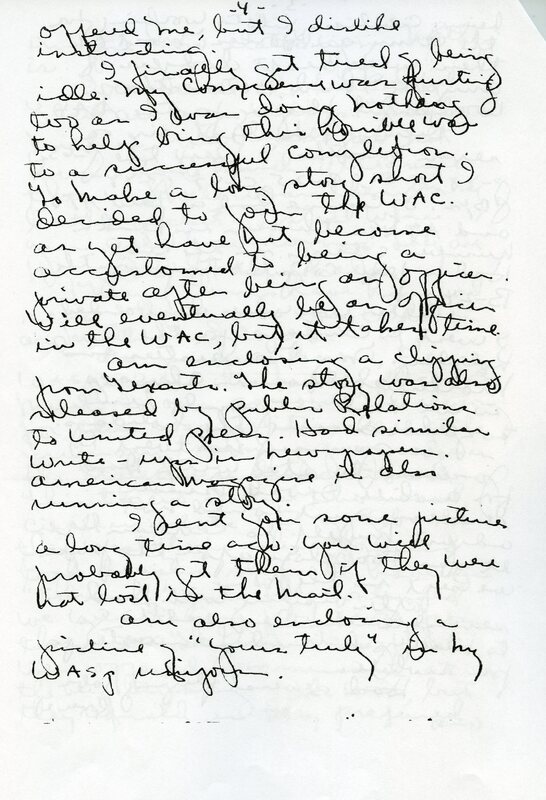 -4-
offered me, but I dislike
instructing.
I finally got tired of being
idle. My conscience was hurting
too as I was doing nothing
to help bring this horrible war
to a successful completion.
To make a long story short I
decided to join the WAC.
as yet have not become
accustomed to being a
private after being an officer.
Will eventually be an officer
in the WAC, but it takes time.
am enclosing a clipping
from Texarts. The story was also
released by Public Relations
to United Press. Had similar
write-ups in newspapers.
American Magazine is also
running a story.
I sent you some pictures
a long time ago. You will
probably get them if they were
not lost in the mail.
am also enclosing a
picture of "yours truly" in my
WASP uniform.